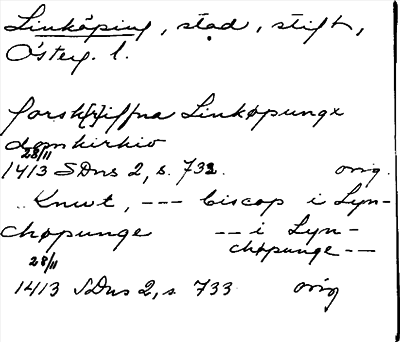 Linköping, stad, stift,
Österg. l.
forsk[r]iffna Linkøpungx
domkirkio
28/11
1413 SDns 2, s. 732. orig.
Knwt, --- biscop i Lyn-
chøpunge --- i Lyn-
chøpunge --
28/11
1413 SDns 2, s 733 orig